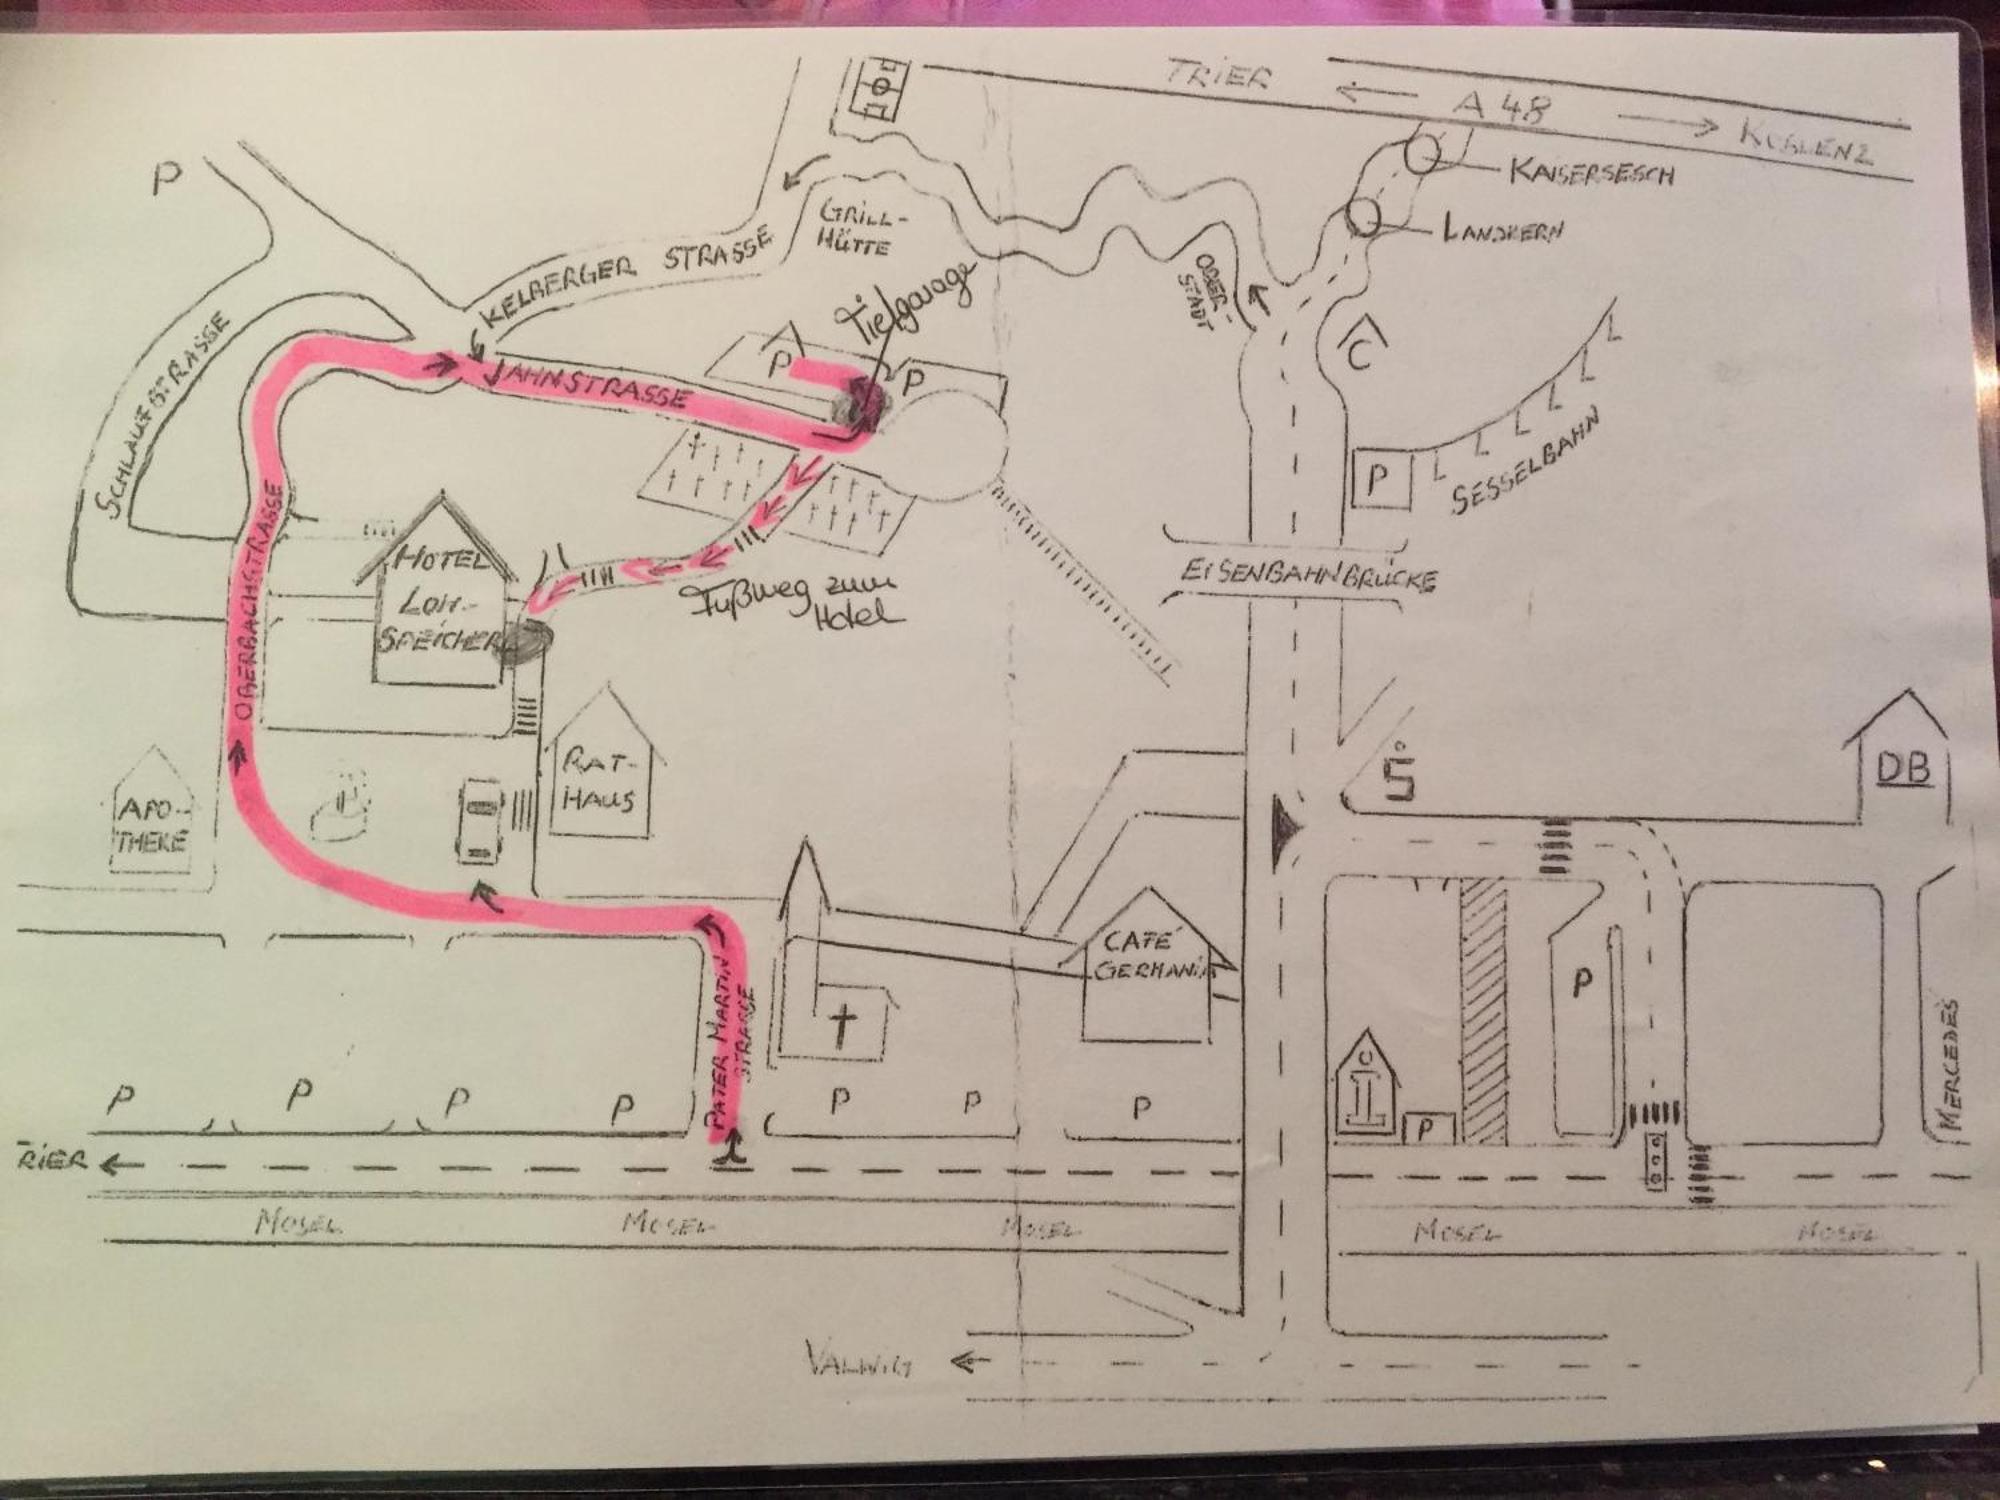 TRIER
A 48
KOBLENZ
P
KAISERSESCH
LANDKERN
GRILL-
HÜTTE
KELBERGER STRASSE
OBER-
STADT
Tiefgarage
SCHLAUFSTRASSE
JAHNSTRASSE
P
P
C
P
SESSELBAHN
OBERBACHSTRASSE
HOTEL
LOH-
SPEICHER
Fußweg zum
Hotel
EISENBAHNBRÜCKE
APO-
THEKE
RAT-
HAUS
S
DB
CAFÉ
GERMANIA
PATER MARTIN
STRASSE
P
MERCEDES
P
P
P
P
P
P
P
P
TRIER
MOSEL
MOSEL
MOSEL
MOSEL
MOSEL
VALWIG